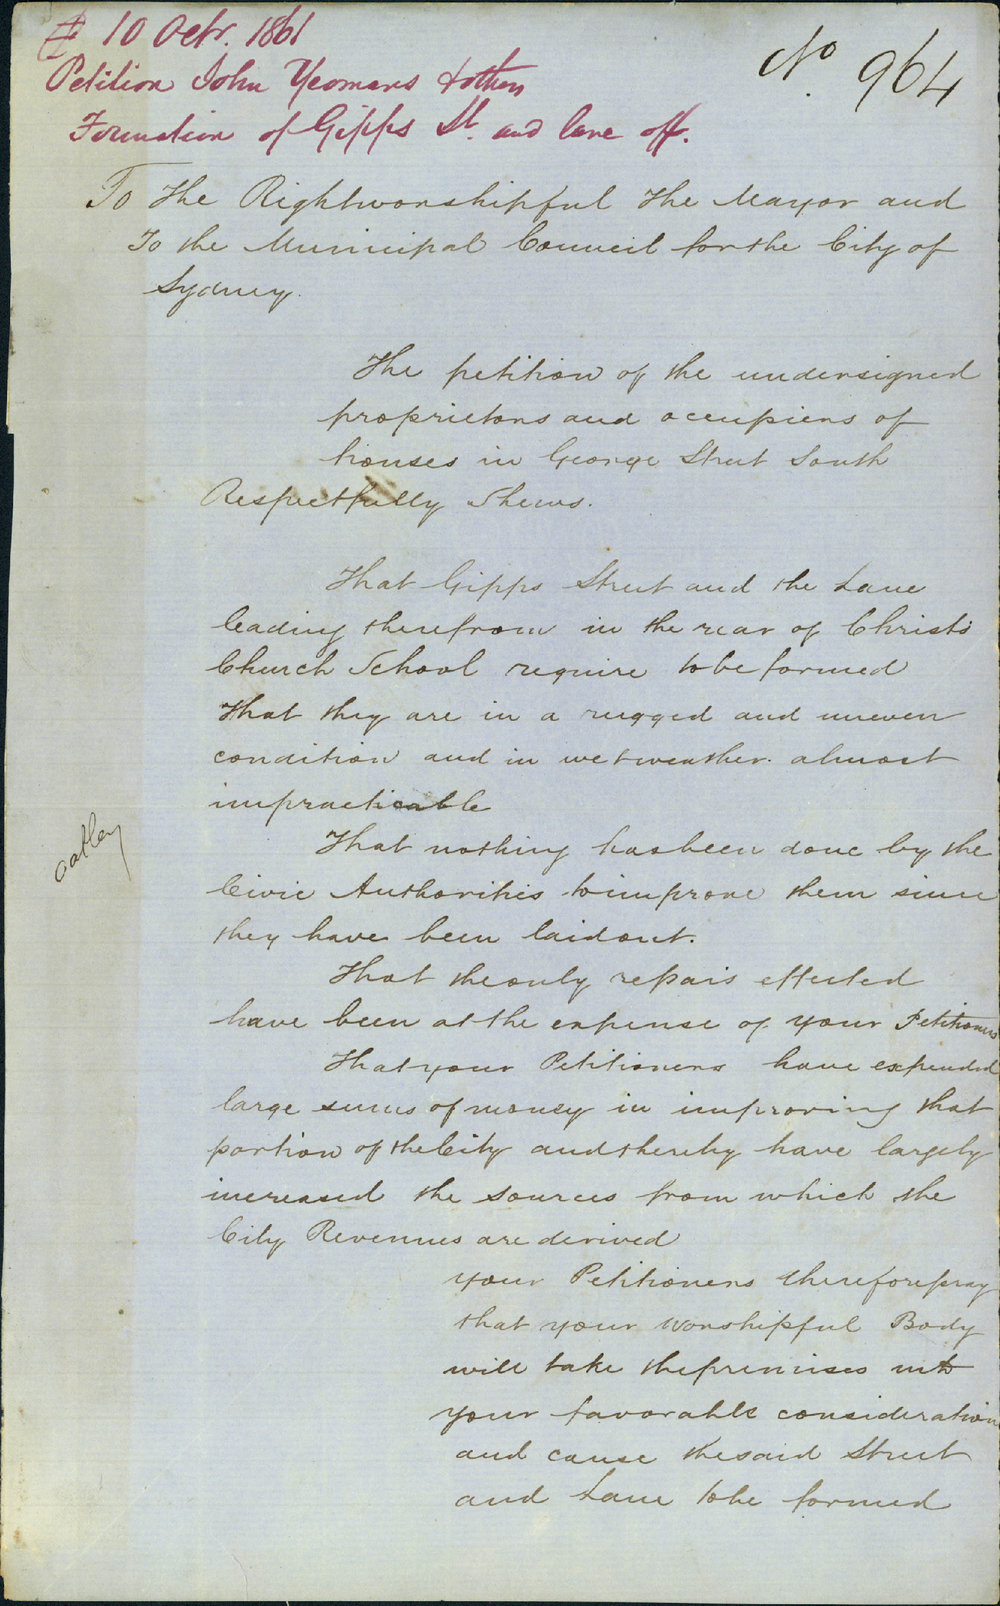 10 Octr. 1861
Petition John Yeomans & others
Formation of Gipps St. and lane off.
No 964
To the Rightworshipful the Mayor and
To the Municipal Council for the City of
Sydney.
The petition of the undersigned
proprietors and occupiers of
houses in George Street South
Respectfully Shews.
That Gipps Street and the Lane
leading therefrom in the rear of Christs
Church School require to be formed
That they are in a rugged and uneven
condition and in wet weather almost
impracticable
That nothing has been done by the
Civic Authorities to improve them since
they have been laid out.
That the only repairs effected
have been at the expense of your Petitioners
That your Petitioners have expended
large sums of money in improving that
portion of the City and thereby have largely
increased the sources from which the
City Revenues are derived
your Petitioners therefore pray
that your worshipful Body
will take the premises into
your favorable consideration
and cause the said Street
and Lane to be formed
oatley